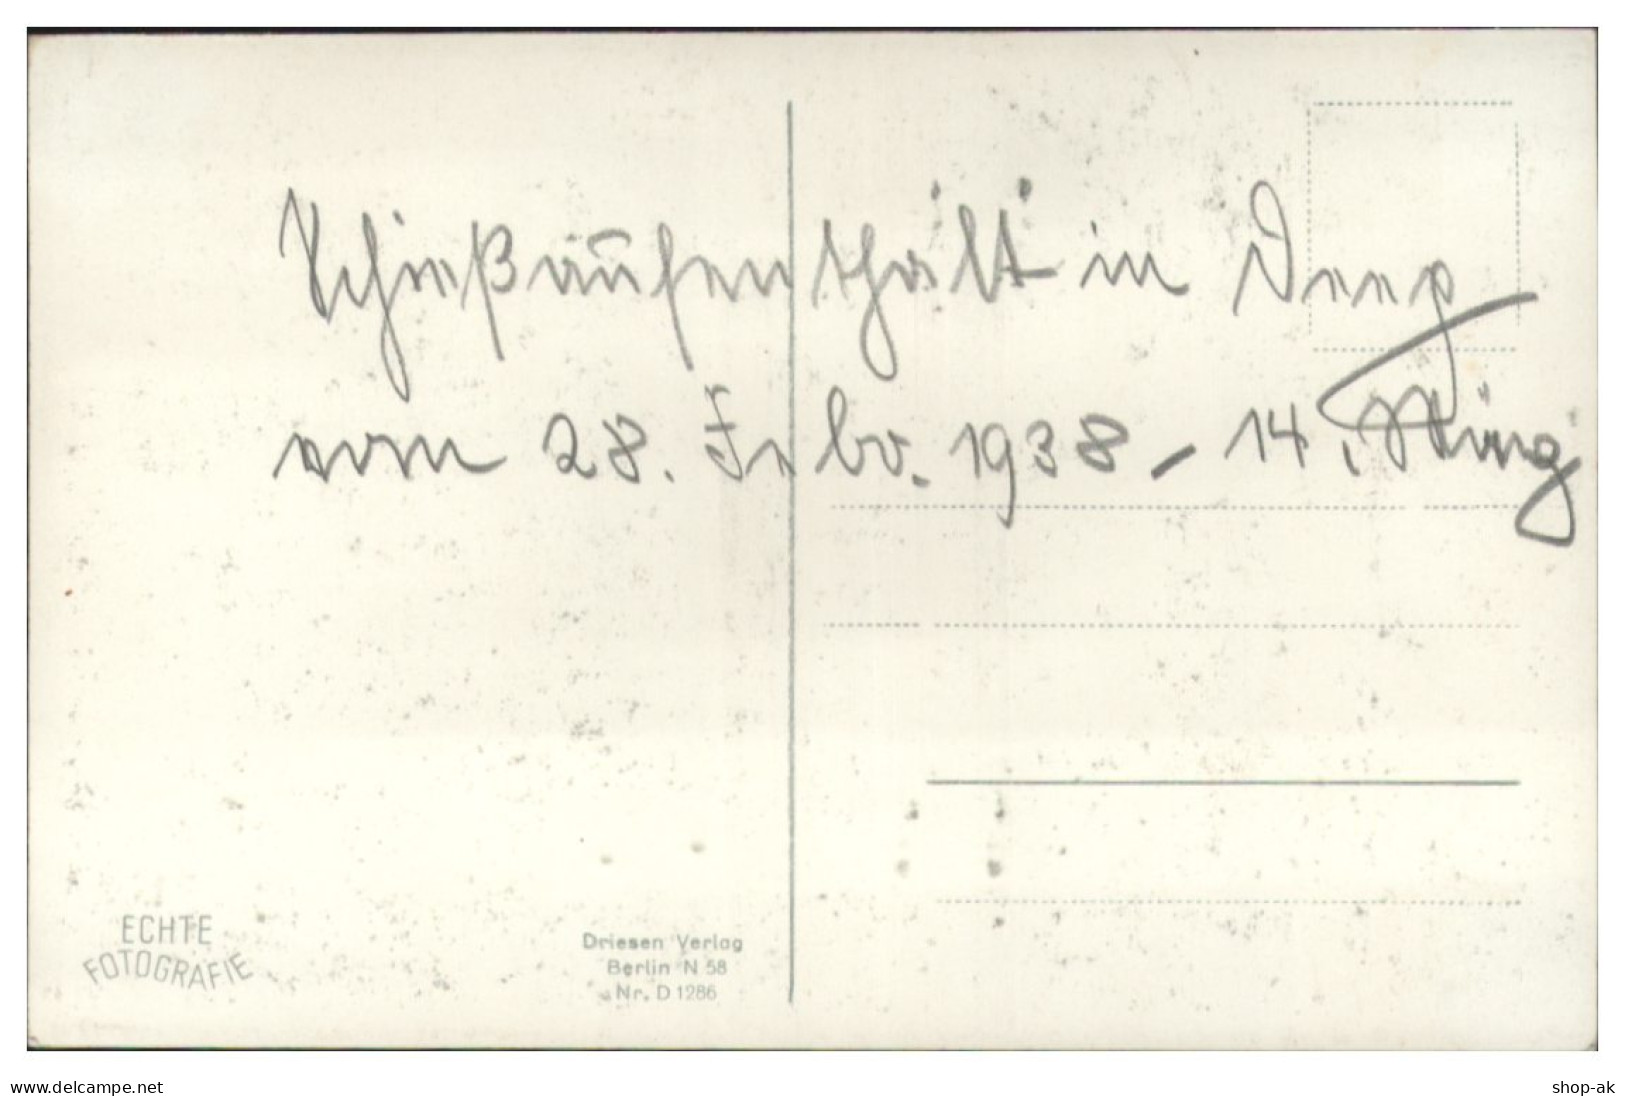 Schießaufenthalt in Deep
vom 28. Febr. 1938 - 14. März
ECHTE
FOTOGRAFIE
Driesen Verlag
Berlin N 58
Nr. D 1286
www.delcampe.net
shop-ak